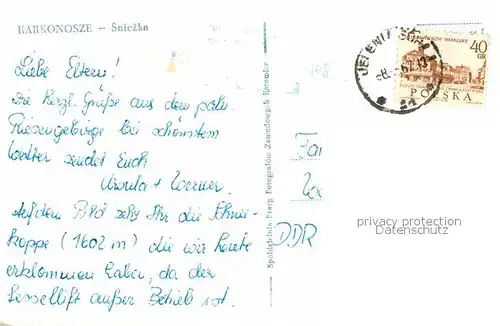 KARKONOSZE – Śnieżka
Liebe Eltern!
Die herzl. Grüße aus dem poln.
Riesengebirge bei schönstem
Wetter sendet Euch
Ursula + Werner.
Auf dem Bild seht Ihr die Schnee-
koppe (1602 m) die wir heute
erklommen haben, da der
Sessellift außer Betrieb ist.
Spółdzielnia Pracy Fotografów Zawodowych
Fa
DDR
JELENIA GÓRA
40
GR
POLSKA
privacy protection
Datenschutz